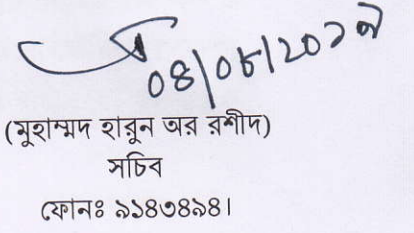 ০৪/০৮/২০১৭
(মুহাম্মদ হারুন অর রশীদ)
সচিব
ফোনঃ ৯১৪৩৪৯৪।